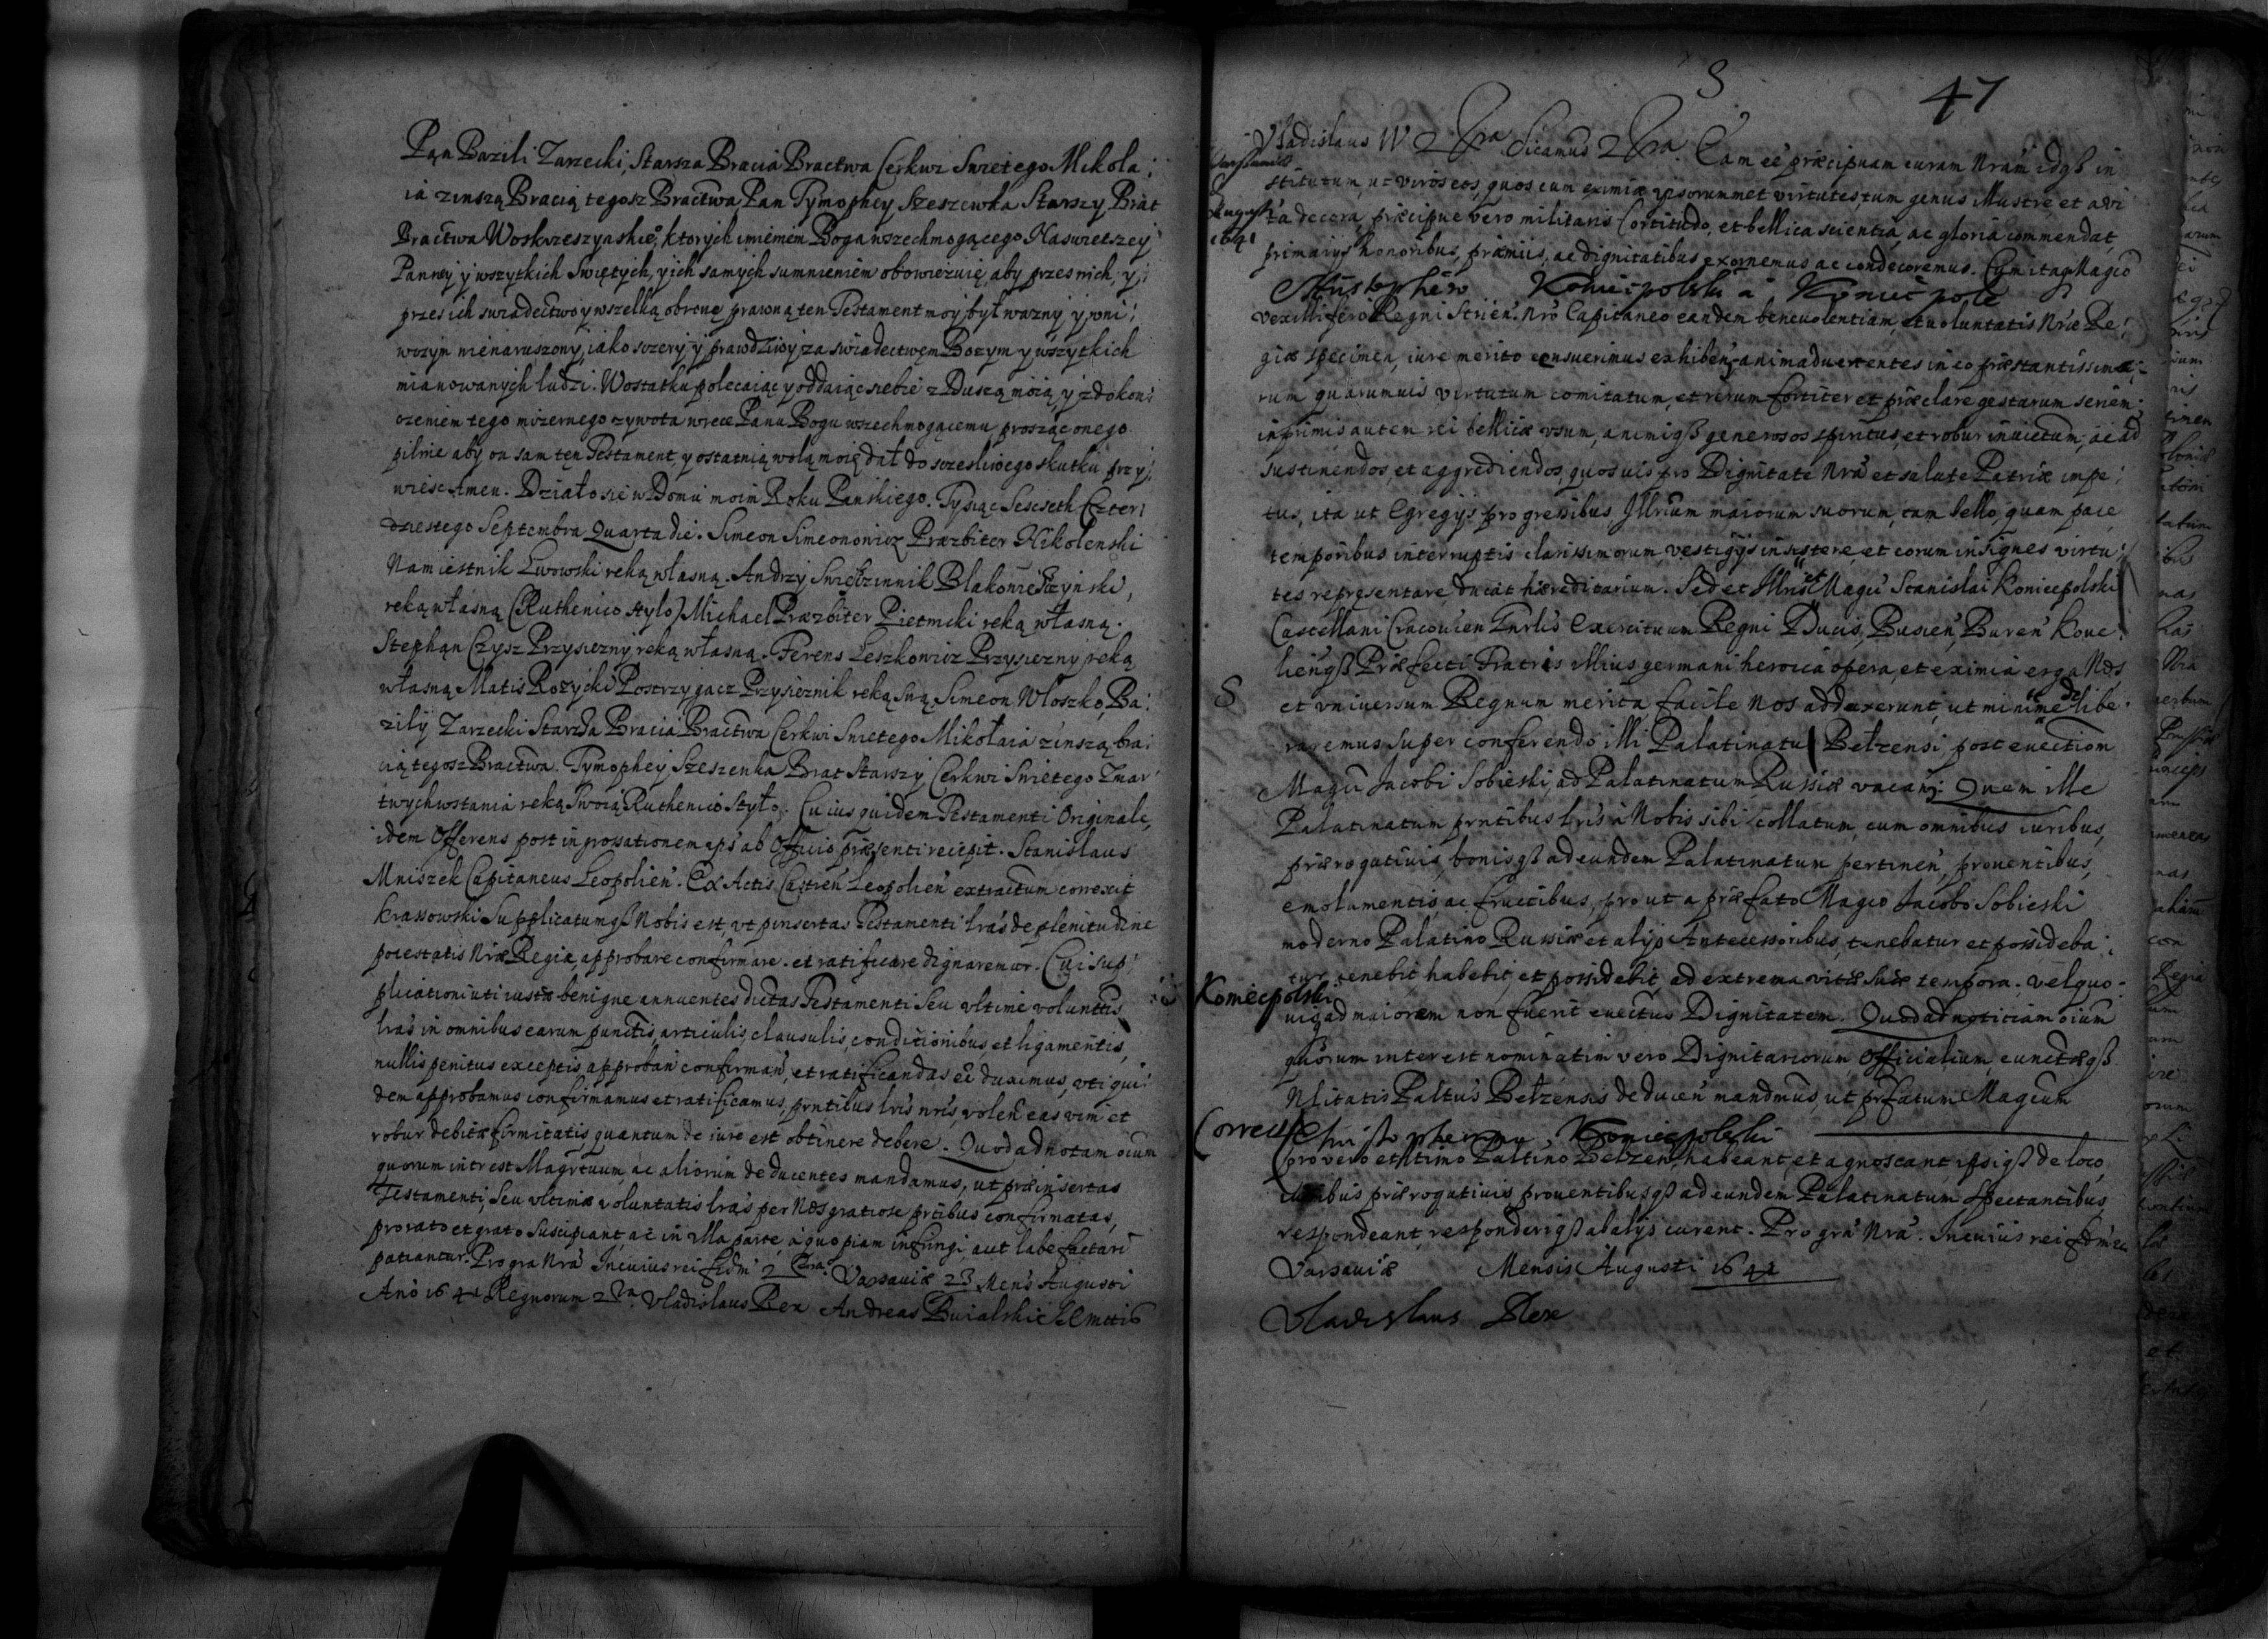 Pan Bazili Zarzecki, Starsza Bracia Bractwa Cerkwi Swietego Mikola;
ia z inszą Bracią tegosz Bractwa, Pan Tymophey Szeszewka Starszy Brat
Bractwa Woskrzeszynskie°, ktorych imieniem Boga wszechmogącego Naswietszey
Panney y wszytkich Swiętych, y ich samych sumnieniem obowiezuię, aby przes nich, y;
przes ich swiadectwo y wszelką obronę prawną ten Testament moy był wazny y w ni;
wczym nienaruszony, iako sczery y prawdziwy za swiadectwem Bozym y wszytkich
mianowanych ludzi. Wostatku polecaiąc y oddaiąc siebie z Duszą moią y z dokon;
czeniem tego mizernego zywota wrece Panu Bogu wszechmogącemu prosząc onego
pilnie aby on sam ten Testament, y ostatnią wolą moię dał do sczesliwego skutku przy;
wiesc Amen. Działo się w Domu moim Roku Panskiego. Tysiąc Sesceth Czter;
dziestego Septembra Quarta die. Simeon Simeonowicz Præzbiter Nikolenski
Namiestnik Lwowski reką własną. Andrzy Swięszinnik
reką własną (Ruthenico stylo) Michael Præzbiter Pietnicki reką własną.
Stephan Czysz Przysiezny reką własną. Ferens Leszkowicz Przysiezny reką
własną Matis Rozycki Postrzygacz Przysieznik reką swą Simeon Wloszko, Ba;
zily Zarzecki Starsza Bracia Bractwa Cerkwi Swietego Mikołaia z inszą bra;
cią tegosz Bractwa. Tymophey Szeszenka Brat Starszy Cerkwi Swietego Zmar;
twychwstania reką Swoią Ruthenico Stylo. Cuius quidem Testamenti Originale,
idem Offerens post ingrossationem aps ab Officio præsenti recepit. Stanislaus
Mniszek Capitaneus Leopolien. Ex Actis Castren Leopolien extractum correxit
Krassowski Supplicatumqß Nobis est, vt pinsertas Testamenti lras de plenitudine
potestatis Nræ Regiæ, approbare confirmare et ratificare dignaremur. Cui sup;
plicationi uti iustæ benigne annuentes dictas Testamenti Seu vltimæ volunttis
lras in omnibus earum punctis, articulis, clausulis, conditionibus, et ligamentis,
nullis penitus exceptis approban confirman, et ratificandas eē duximus, vti qui;
dem approbamus confirmamus et ratificamus, prntibus lris nris, volen eas vim et
robur debitæ firmitatis quantum de iure est obtinere debere. Quod ad notam oium
quorum intrest Magrtuum, ac aliorum deducentes mandamus, ut præinsertas
Testamenti, Seu vltimæ voluntatis lras per Nos gratiose prtibus confirmatas,
pro rato et grato Suscipiant, ac in illa parte à quopiam infringi aut labefactari
patiantur. Pro gra Nra. In cuius rei fidm 2 tra. Varsaviæ 23 Mens Augusti
Ano 1641 Regnorum 2 ra. Vladislaus Rex Andreas Buialski
S
47
Vladislaus IV 2 tra Dicamus 2 tra. Eam eē præcipuam curam Nram idqß in
August
1641
stitutum, ut viros eos, quos cum eximiæ ipsorummet virtutes, tum genus illustre, et avi
ta decora, præcipue vero militaris fortitudo, et bellica scientia, ac gloria commendat,
primarijs honoribus, præmiis, ac dignitatibus exornemus ac condecoremus. Cum itaq Magco
Christophero Koniecpolski a Koniecpole
vexillifero Regni Strien. Nro Capitaneo eandem benevolentiam, et voluntatis Nræ Re;
giæ specimen, iure merito censuerimus exhiben, animadvertentes in eo præstantissima;
rum quarumvis virtutum comitatum, et rerum fortiter et præclare gestarum seriem;
inprimis autem rei bellicæ vsum, animiqß generosos spiritus, et robur invictum, ac ad
sustinendos, et aggrediendos, quosvis pro Dignitate Nra et salute Patriæ impe;
tus, ita ut Egregijs progressibus Illrium maiorum suorum, tam bello, quam pace
temporibus interruptis clarissimorum, vestigijs insistere, et eorum insignes virtu;
tes representare, ducat hæreditarium. Sed et Illris et Magci Stanislai Koniecpolski
Castellani Cracovien Gnrlis Exercituum Regni Ducis, Buscen Baren Kove;
lienqß Præfecti Fratris illius germani heroica opera, et eximia erga Nos
S et vniversum Regnum merita facile nos adduxerunt, ut minime delibe;
raremus super conferendo illi Palatinatu Bełzensi, post evectiom
Magci Jacobi Sobieski, ad Palatinatum Russiæ vacan: Quem ille
Palatinatum prntibus lris à Nobis sibi collatum, cum omnibus iuribus,
prærogativis, bonisqß ad eundem Palatinatum pertinen, proventibus,
emolumentis, ac fructibus, prout a præfato Magco Jacobo Sobieski
moderno Palatino Russiæ et alijs Antecessoribus, tenebatur et possideba;
tur, tenebit, habebit, et possidebit, ad extrema vitæ suæ tempora, vel quo-
Koniecpolski
usq ad maiorem non fuerit evectus Dignitatem. Quod ad notitiam oium
quorum interest nominatim vero Dignitariorum, Officialium, cunctæqß
Nlitatis Paltus Bełzensis deducen mandmus, ut præfatum Magcum
Correct Christopherum Koniecpolski
pro vero et ltimo Paltino Bełzen, habeant, et agnoscant, ipsiqß de loco,
iuribus prærogativis proventibusqß ad eundem Palatinatum spectantibus,
respondeant, responderiqß ab alijs curent. Pro gra Nra. In cuius rei fidm
Varsaviæ Mensis Augusti 1641
Vladislaus Rex